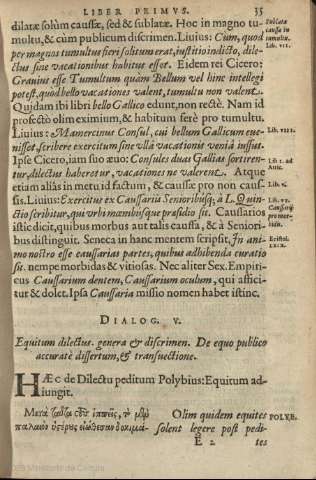 LIBER PRIMVS. 35
dilatæ solùm caussæ, sed & sublatæ. Hoc in magno tu-
multu, & cùm publicum discrimen. Liuius: Cùm, quod
per magnos tumultus fieri solitum erat, iustitio indicto, dile-
ctus sine vacationibus habitus esset. Eidem rei Cicero:
Grauius esse Tumultum quàm Bellum vel hinc intellegi
potest, quòd bello vacationes valent, tumultu non valent.
Quidam ibi libri bello Gallico edunt, non rectè. Nam id
profectò olim eximium, & habitum serè pro tumultu.
Liuius: Mamercinus Consul, cui bellum Gallicum eue-
nisset, scribere exercitum sine vlla vacationis veniâ iussus.
Ipse Cicero, iam suo æuo: Consules duas Gallias sortiren-
tur, dilectus haberetur, vacationes ne valerent. Atque
etiam aliàs in metu id factum, & caussæ pro non caus-
sis. Liuius: Exercitus ex Caussariis Senioribusq́; à L. Quin-
ctio scribitur, qui vrbi mœnibusque præsidio sit. Caussarios
istic dicit, quibus morbus aut talis caussa, & à Seniori-
bus distinguit. Seneca in hanc mentem scripsit, In ani-
mo nostro esse caussarias partes, quibus adhibenda curatio
sit. nempe morbidas & vitiosas. Nec aliter Sex. Empiri-
cus Caussarium dentem, Caussarium oculum, qui affici-
tur & dolet. Ipsa Caussaria missio nomen habet istinc.
Sublata
caussa in
tumultu.
Lib. VII.
Lib. VIII.
Lib. I. ad
Attic.
Lib. X.
Lib. VI.
Caussarij
pro mor-
Epistol.
LXIX.
DIALOG. V.
Equitum dilectus. genera & discrimen. De equo publico
accuratè dissertum, & transuectione.
HÆc de Dilectu peditum Polybius: Equitum ad-
iungit.
Μετὰ ταῦτα τοὺς ἱππεῖς, τὸ μὲν
παλαιὸν ὑστέρους εἰώθεσαν δοκιμά-
Olim quidem equites
solent legere post pedi-
POLYB.
E 2. tes